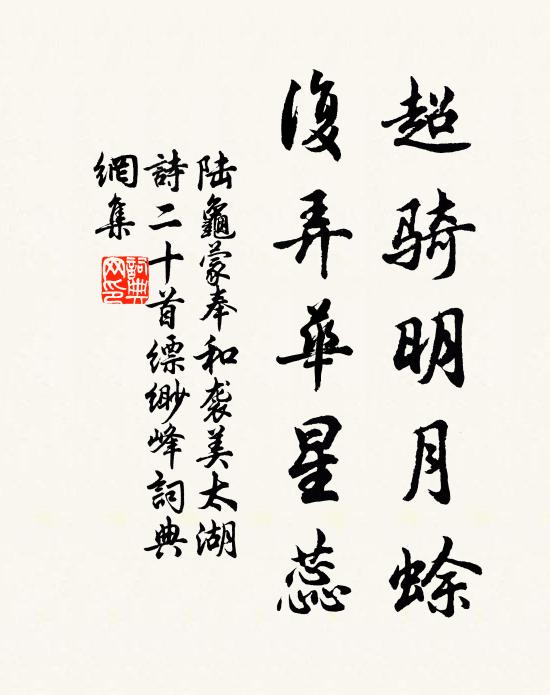 超骑明月蜍
復弄華星蕊
陆龜蒙奉和袭美太湖
詩二十首缥缈峰詞典
網集
詞典
网印